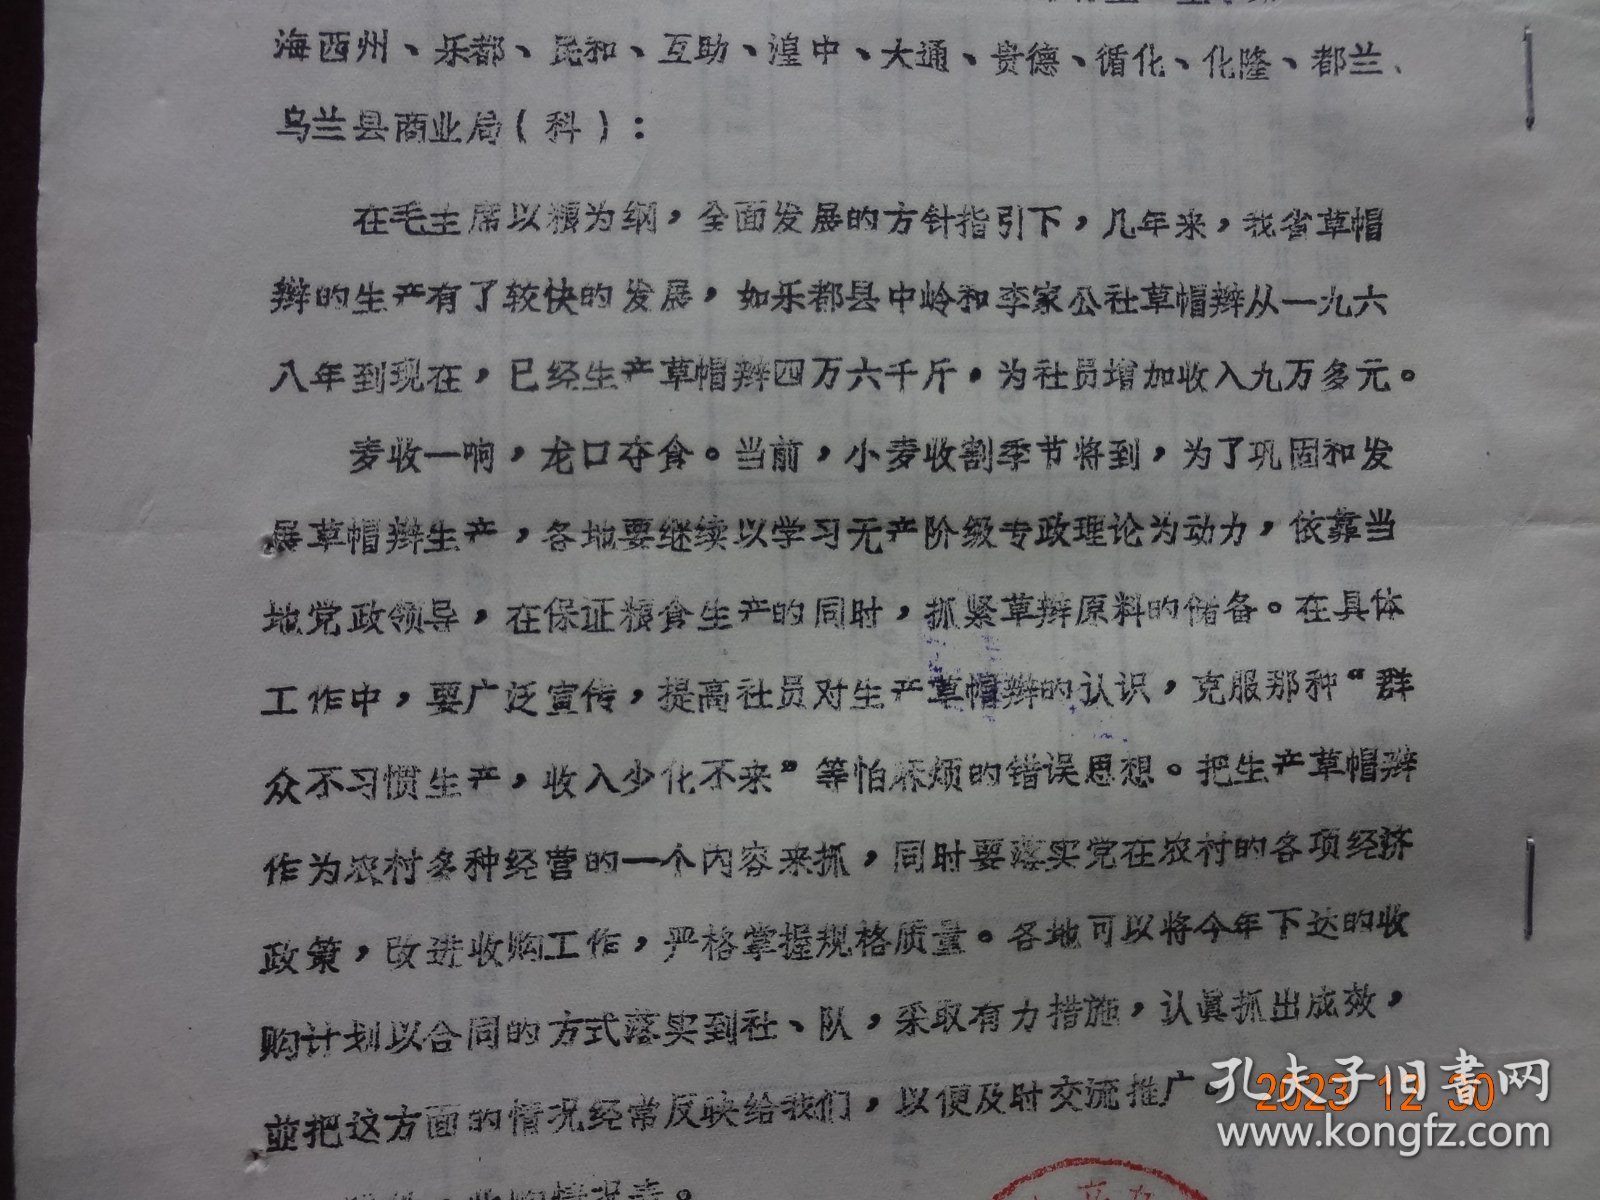 海西州、乐都、民和、互助、湟中、大通、贵德、循化、化隆、都兰、
乌兰县商业局(科):
在毛主席以粮为纲,全面发展的方针指引下,几年来,我省草帽
辫的生产有了较快的发展,如乐都县中岭和李家公社草帽辫从一九六
八年到现在,已经生产草帽辫四万六千斤,为社员增加收入九万多元。
麦收一响,龙口夺食。当前,小麦收割季节将到,为了巩固和发
展草帽辫生产,各地要继续以学习无产阶级专政理论为动力,依靠当
地党政领导,在保证粮食生产的同时,抓紧草辫原料的储备。在具体
工作中,要广泛宣传,提高社员对生产草帽辫的认识,克服那种“群
众不习惯生产,收入少化不来”等怕麻烦的错误思想。把生产草帽辫
作为农村多种经营的一个内容来抓,同时要落实党在农村的各项经济
政策,改进收购工作,严格掌握规格质量。各地可以将今年下达的收
购计划以合同的方式落实到社、队,采取有力措施,认真抓出成效,
並把这方面的情况经常反映给我们,以便及时交流推广。
2023 12 30
孔夫子旧书网
www.kongfz.com